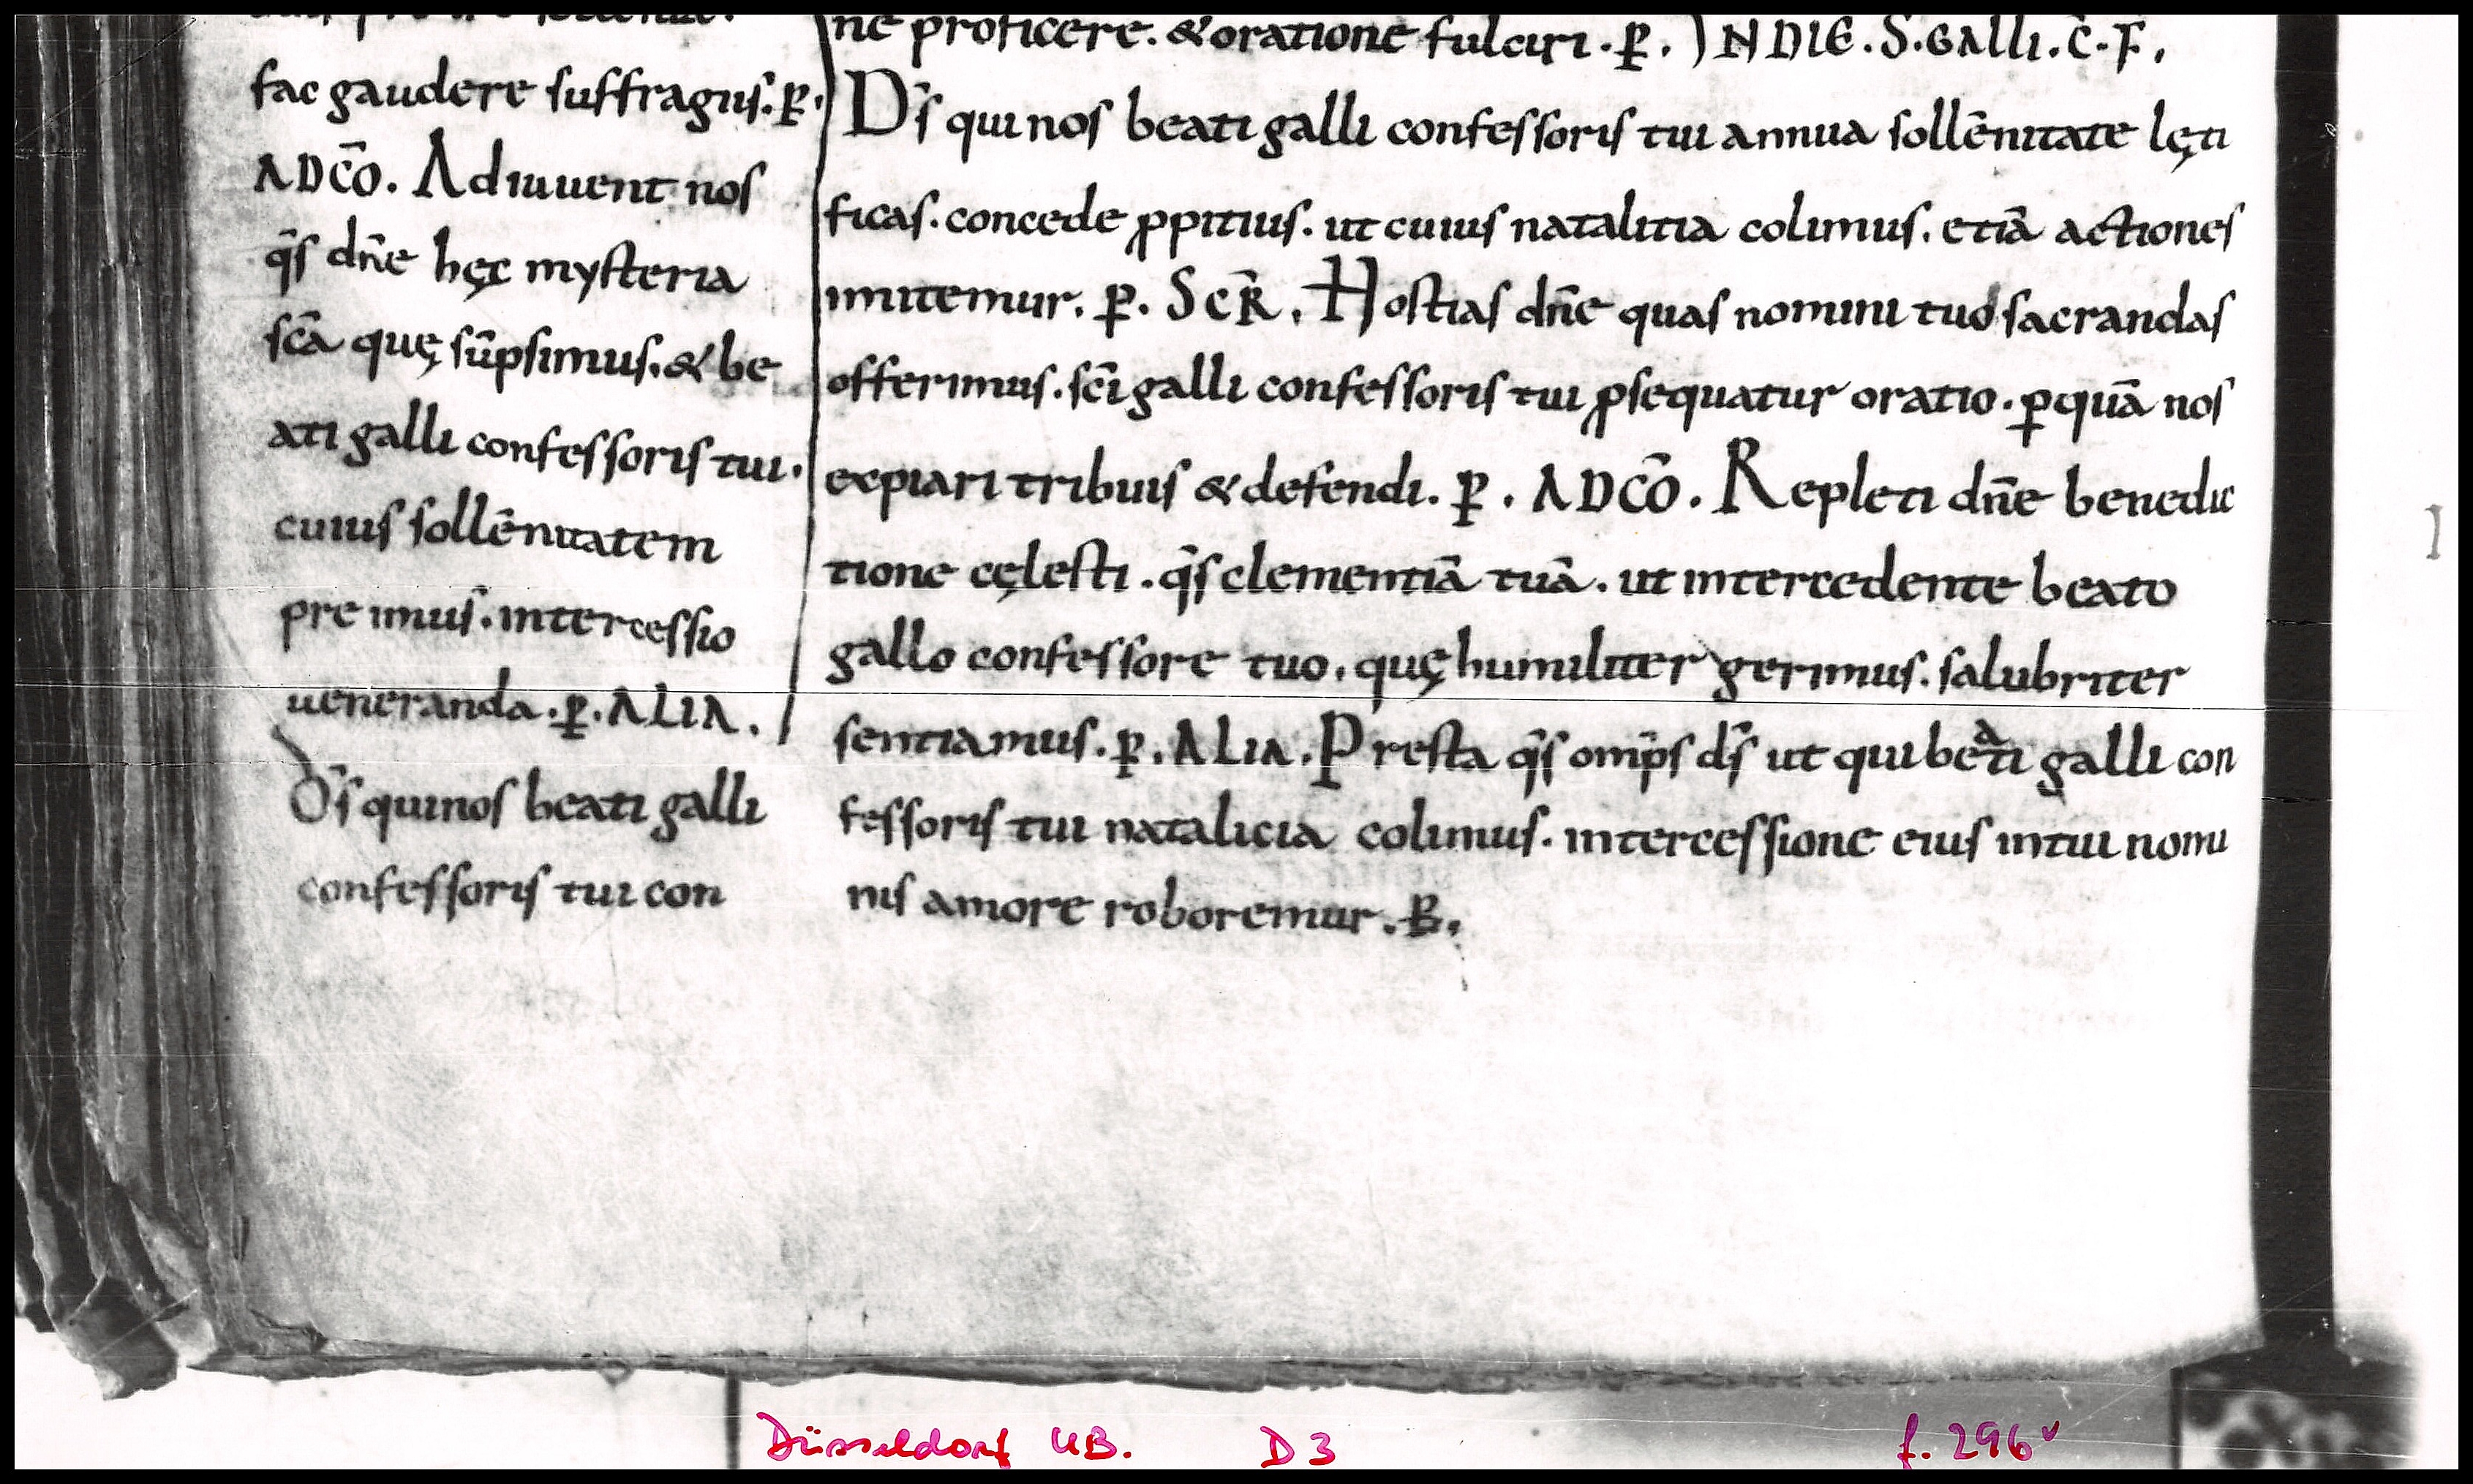 fac gaudere suffragiis. p̄.
ADCŌ. Adiuuent nos
q̄s dn̄e hęc mysteria
sc̄a quę sūpsimus. & be
ati galli confessoris tui.
cuius sollēnitatem
pre imus. intercessio
ueneranda. p̄. ALIA.
D̄s qui nos beati galli
confessoris tui con
ne proficere. & oratione fulciri. p̄. IN DIE. S. GALLI. C̄. F.
D̄s qui nos beati galli confessoris tui annua sollēnitate lęti
ficas. concede ꝓpitius. ut cuius natalitia colimus. etiā actiones
imitemur. p̄. SCR̄. Hostias dn̄e quas nomini tuo sacrandas
offerimus. sc̄i galli confessoris tui ꝓsequatur oratio. ꝑ quā nos
expiari tribuis & defendi. p̄. ADCŌ. Repleti dn̄e benedic
tione cęlesti. q̄s clementiā tuā. ut intercedente beato
gallo confessore tuo. quę humiliter gerimus. salubriter
sentiamus. p̄. ALIA. Presta q̄s omp̄s d̄s ut qui beati galli con
fessoris tui natalicia colimus. intercessione eius in tui nomi
nis amore roboremur. p̄.
Düsseldorf UB. D3 f. 296v